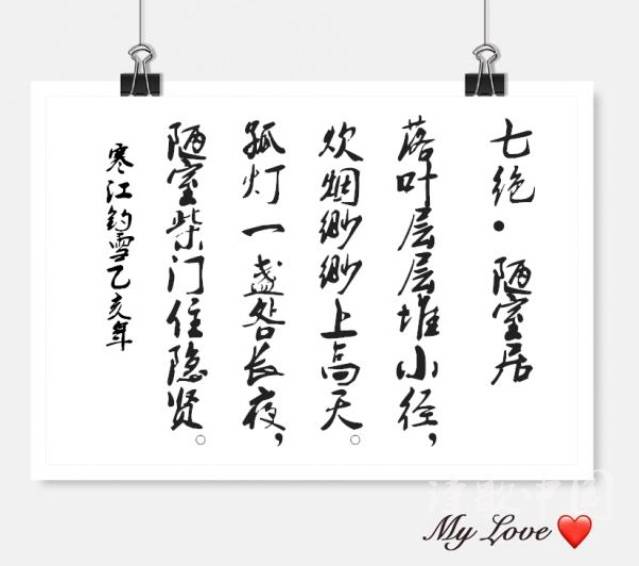 七绝·陋室居
落叶层层堆小径，
炊烟缈缈上高天。
孤灯一盏咎长夜，
陋室柴门住隐贤。
寒江钓雪乙亥年
诗歌中国
My Love